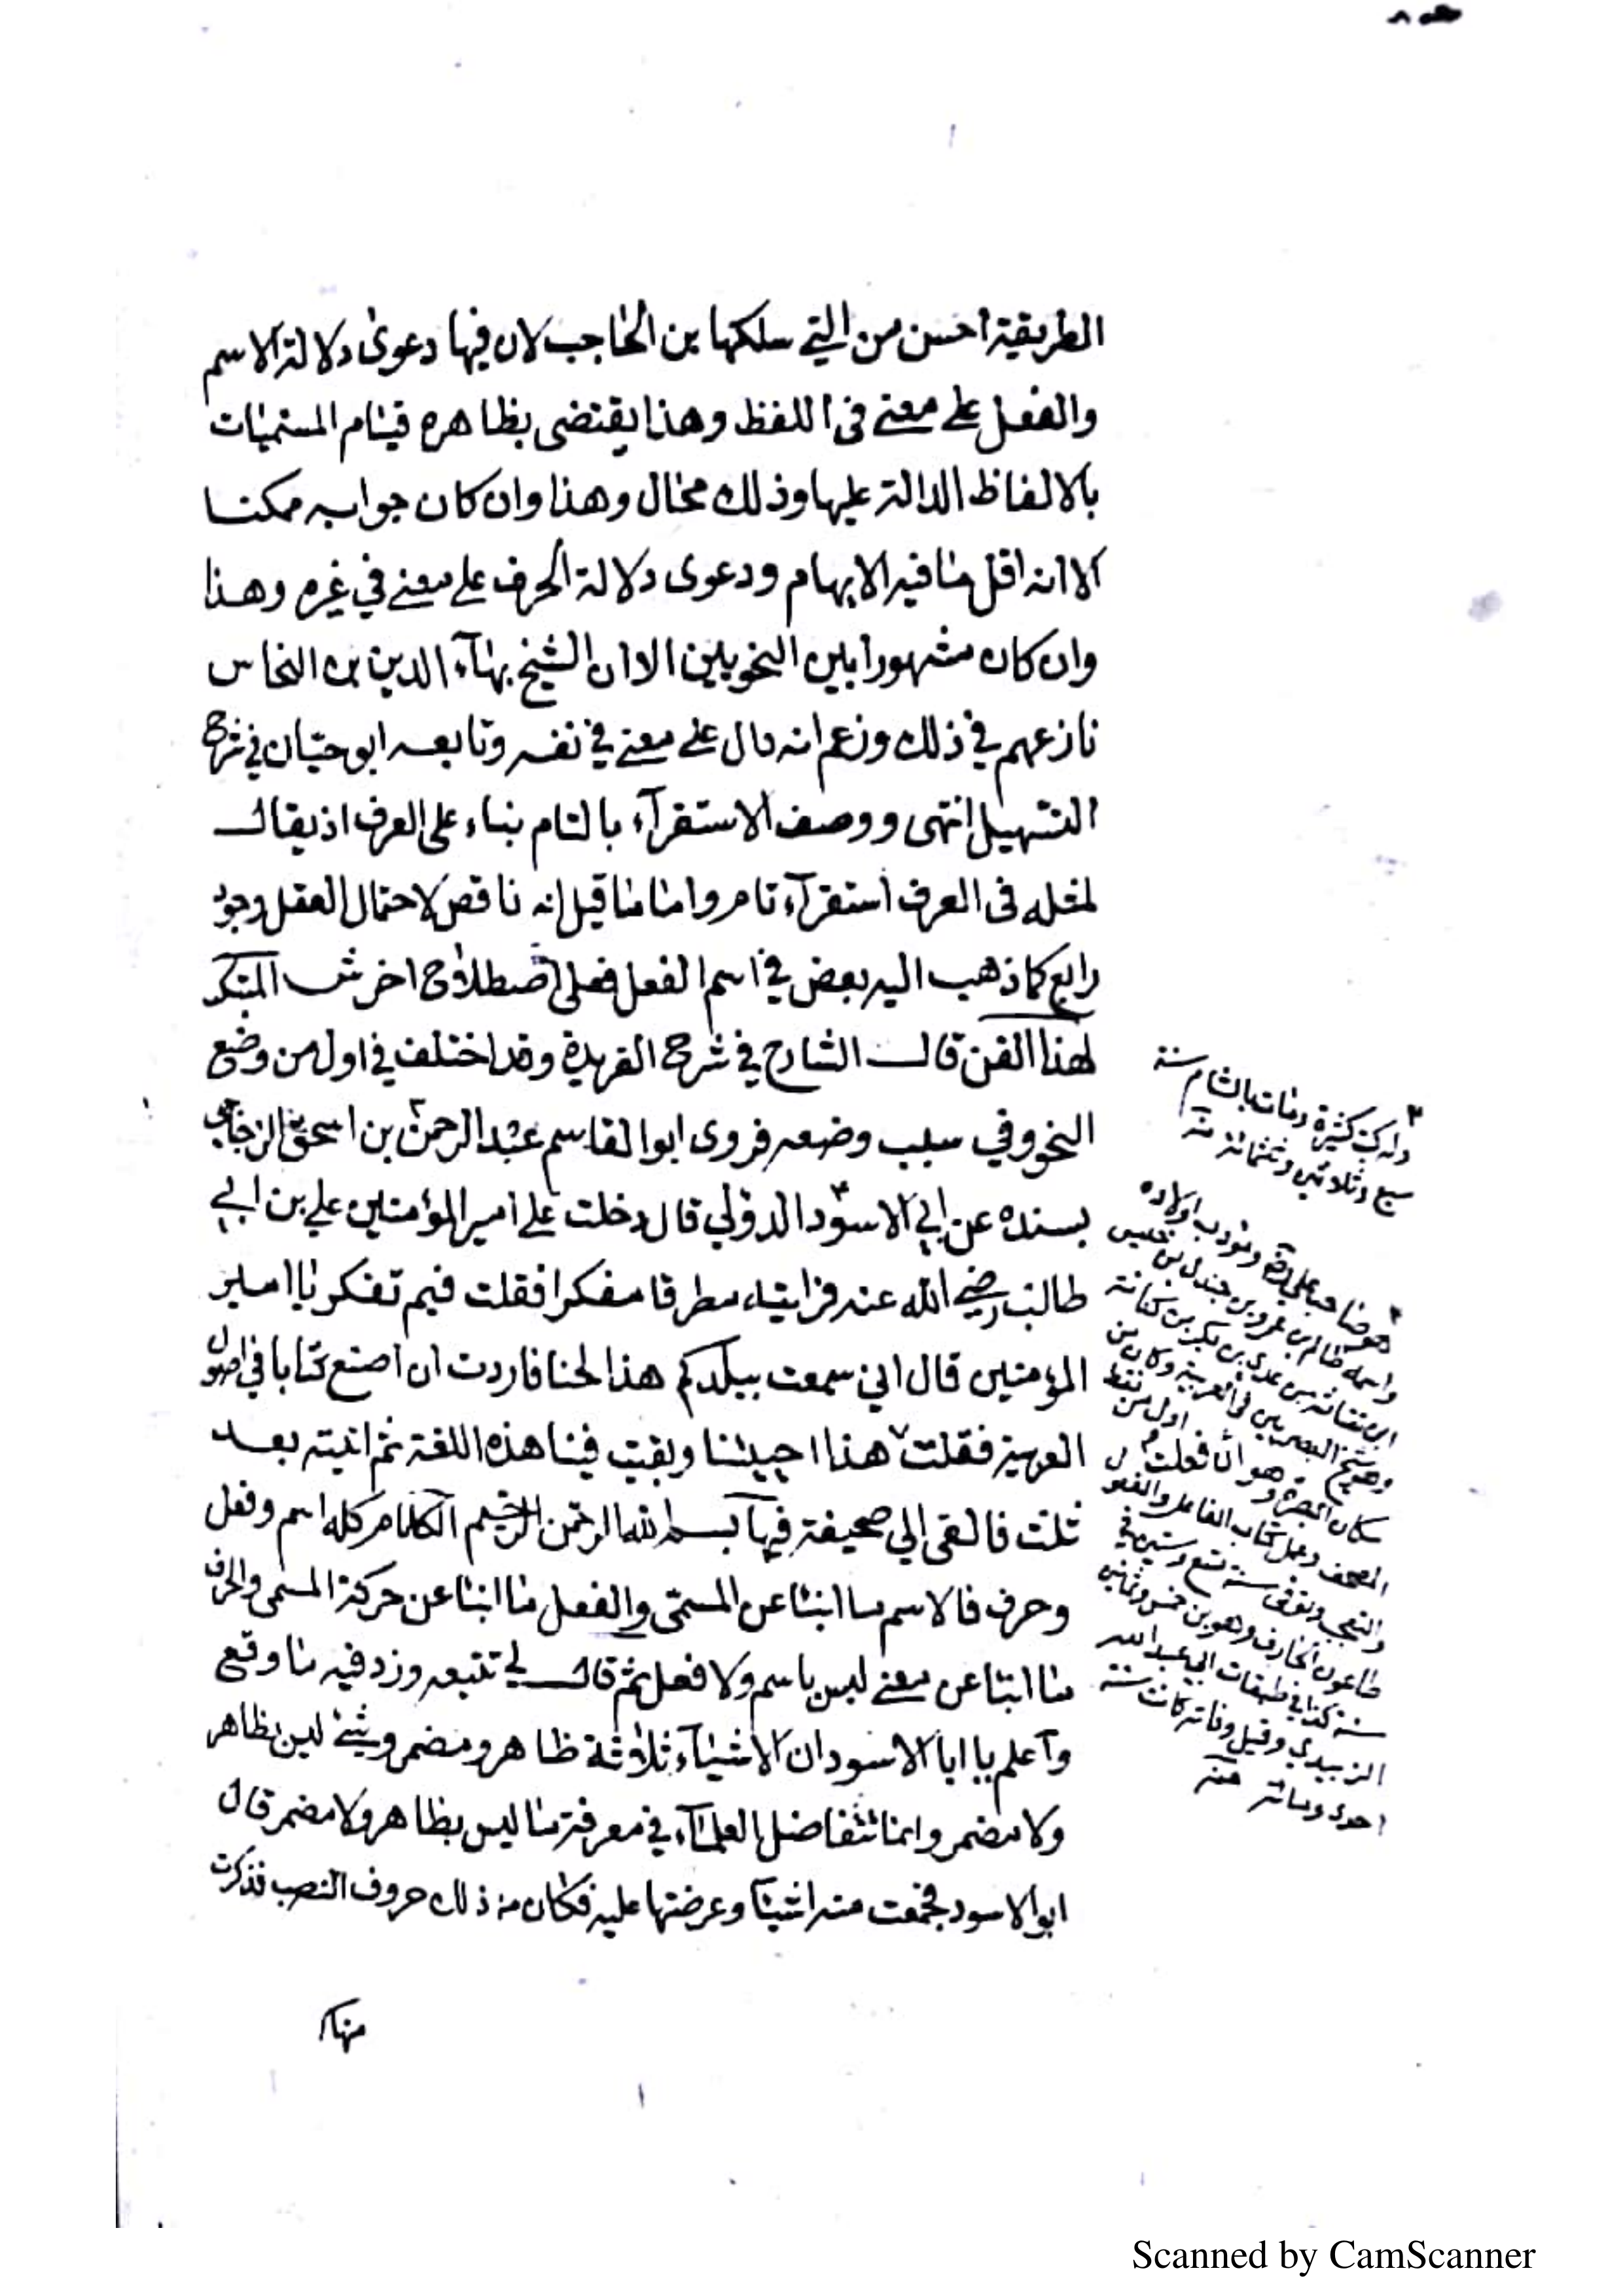 الطريقة احسن من التي سلكها بن الحاجب لان فيها دعوى دلالة الاسم
والفعل على معنى في اللفظ وهذا يقتضى بظاهره قيام المسميات
بالالفاظ الدالة عليها وذلك محال وهذا وان كان جوابه ممكنا
الا انه اقل ما فيه الابهام ودعوى دلالة الحرف على معنى في غيره وهذا
وان كان مشهورا بين النحويين الا ان الشيخ بهاء الدين بن النحاس
نازعهم في ذلك وزعم انه دال على معنى في نفسه وتابعه ابو حيان في شرح
التسهيل انتهى ووصف الاستقرآء بالتام بناء على العرف اذ يقال
لمثله في العرف استقرآء تام واما ما قيل انه ناقص لاحتمال العقل وجود
رابع كما ذهب اليه بعض في اسم الفعل فعلى اصطلاح اخر ش المبتكر
لهذا الفن قال الشارح في شرح الفريدة وقد اختلف في اول من وضع
النحو وفي سبب وضعه فروى ابو القاسم عبد الرحمن بن اسحق الزجاجي
بسنده عن ابي الاسود الدؤلي قال دخلت على امير المؤمنين علي بن ابي
طالب رضي الله عنه فرايته مطرقا مفكرا فقلت فيم تفكر يا امير
المؤمنين قال اني سمعت ببلدكم هذا لحنا فاردت ان اصنع كتابا في اصول
العربية فقلت هذا احييتنا وبقيت فينا هذه اللغة ثم اتيته بعد
ثلث فالقى الي صحيفة فيها بسم الله الرحمن الرحيم الكلام كله اسم وفعل
وحرف فالاسم ما انبئا عن المسمى والفعل ما انبئا عن حركة المسمى والحرف
ما انبئا عن معنى ليس باسم ولا فعل ثم قال لي تتبعه وزد فيه ما وقع
واعلم يا ابا الاسود ان الاشيآء ثلاثة ظاهر ومضمر وشئ ليس بظاهر
ولا مضمر وانما تتفاضل العلمآء في معرفة ما ليس بظاهر ولا مضمر قال
ابو الاسود فجمعت منه اشيآ وعرضتها عليه فكان من ذلك حروف النصب فذكرت
منها
وله كتب كثيرة ومات بالشام سنة
سبع وثلاثين وثلثمائة منه
هو صاحب علي ومؤدب اولاده
واسمه ظالم بن عمرو بن جندل بن
ابن نفاثة بن عدي بن بكر بن كنانة
وهو شيخ البصريين في العربية وكان من
سكان البصرة وهو اول من نقط
المصحف وعمل كتاب الفاعل والمفعول
والتعجب وتوفى سنة تسع وستين في
طاعون الجارف وهو بن خمس وثمانين
سنة كذا في طبقات ابي عبد الله
الزبيدي وقيل وفاته كانت سنة
احدى ومائة منه
Scanned by CamScanner